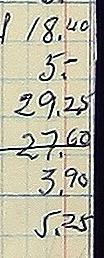 18.40
5.-
29.25
27.60
3.90
5.25